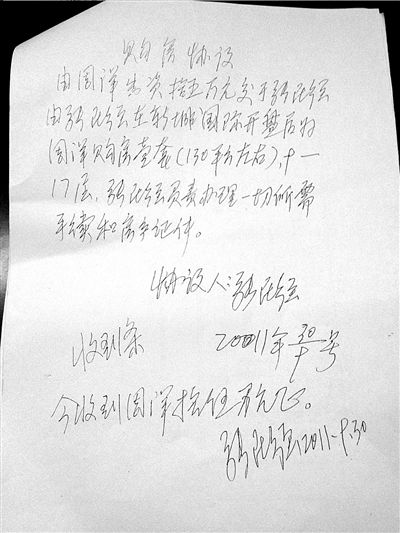 购房协议
由周洋出资拾五万元交于张晓弦
由张晓弦在新城国际开盘后为
周洋购房壹套(130平方左右),十一
17层,张晓弦负责办理一切所需
手续和房产证件。
协议人:张
收到条
20011年30/十号
今收到周洋拾伍万元正。
张 2011-9.30